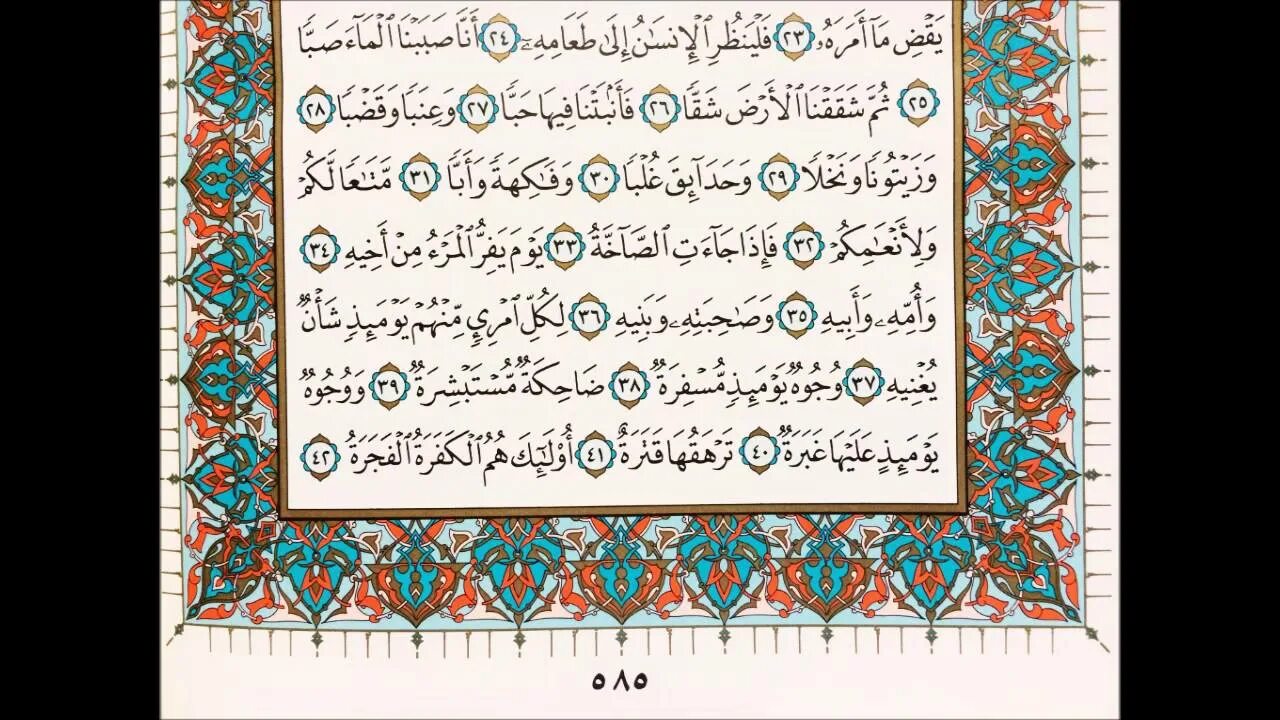 يَقْضِ مَآ أَمَرَهُۥ ٢٣ فَلْيَنظُرِ ٱلْإِنسَٰنُ إِلَىٰ طَعَامِهِۦٓ ٢٤ أَنَّا صَبَبْنَا ٱلْمَآءَ صَبًّا
٢٥ ثُمَّ شَقَقْنَا ٱلْأَرْضَ شَقًّا ٢٦ فَأَنۢبَتْنَا فِيهَا حَبًّا ٢٧ وَعِنَبًا وَقَضْبًا ٢٨
وَزَيْتُونًا وَنَخْلًا ٢٩ وَحَدَآئِقَ غُلْبًا ٣٠ وَفَٰكِهَةً وَأَبًّا ٣١ مَّتَٰعًا لَّكُمْ
وَلِأَنْعَٰمِكُمْ ٣٢ فَإِذَا جَآءَتِ ٱلصَّآخَّةُ ٣٣ يَوْمَ يَفِرُّ ٱلْمَرْءُ مِنْ أَخِيهِ ٣٤
وَأُمِّهِۦ وَأَبِيهِ ٣٥ وَصَٰحِبَتِهِۦ وَبَنِيهِ ٣٦ لِكُلِّ ٱمْرِئٍ مِّنْهُمْ يَوْمَئِذٍ شَأْنٌ
يُغْنِيهِ ٣٧ وُجُوهٌ يَوْمَئِذٍ مُّسْفِرَةٌ ٣٨ ضَاحِكَةٌ مُّسْتَبْشِرَةٌ ٣٩ وَوُجُوهٌ
يَوْمَئِذٍ عَلَيْهَا غَبَرَةٌ ٤٠ تَرْهَقُهَا قَتَرَةٌ ٤١ أُو۟لَٰٓئِكَ هُمُ ٱلْكَفَرَةُ ٱلْفَجَرَةُ ٤٢
٥٨٥